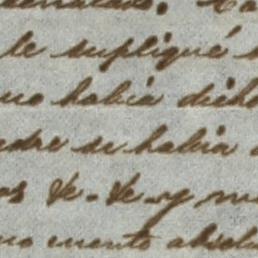 le supliqué
no habia dicho
dre si habia
os &. &. y
no cuento absolu